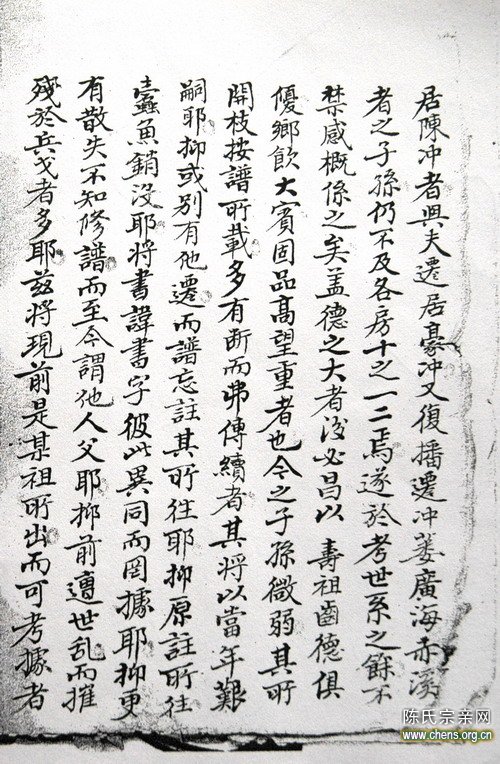 居陳冲者與夫遷居豪冲又復播遷冲蔞廣海赤溪
者之子孫仍不及各房十之一二焉遂於考世系之餘不
禁感概係之矣盖德之大者後必昌以 壽祖齒德俱
優鄉飲大賓固品高望重者也今之子孫微弱其所
開枝按譜所載多有斷而弗傳續者其將以當年艱
嗣耶抑或別有他遷而譜忘註其所往耶抑原註所往
蠧魚銷沒耶將書諱書字彼此異同而罔據耶抑更
有散失不知修譜而至今謂他人父耶抑前遭世乱而摧
殘於兵戈者多耶兹將現前是某祖所出而可考據者
陈氏宗亲网
www.chens.org.cn